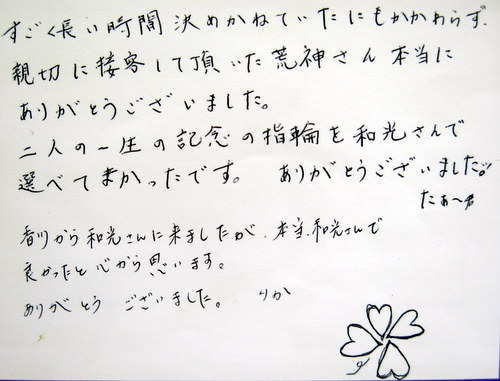 すごく長い時間決めかねていたにもかかわらず、
親切に接客して頂いた荒神さん本当に
ありがとうございました。
二人の一生の記念の指輪を和光さんで
選べてよかったです。 ありがとうございました!!
たぁ〜君
香川から和光さんに来ましたが、本当、和光さんで
良かったと心から思います。
ありがとう ございました。 りか